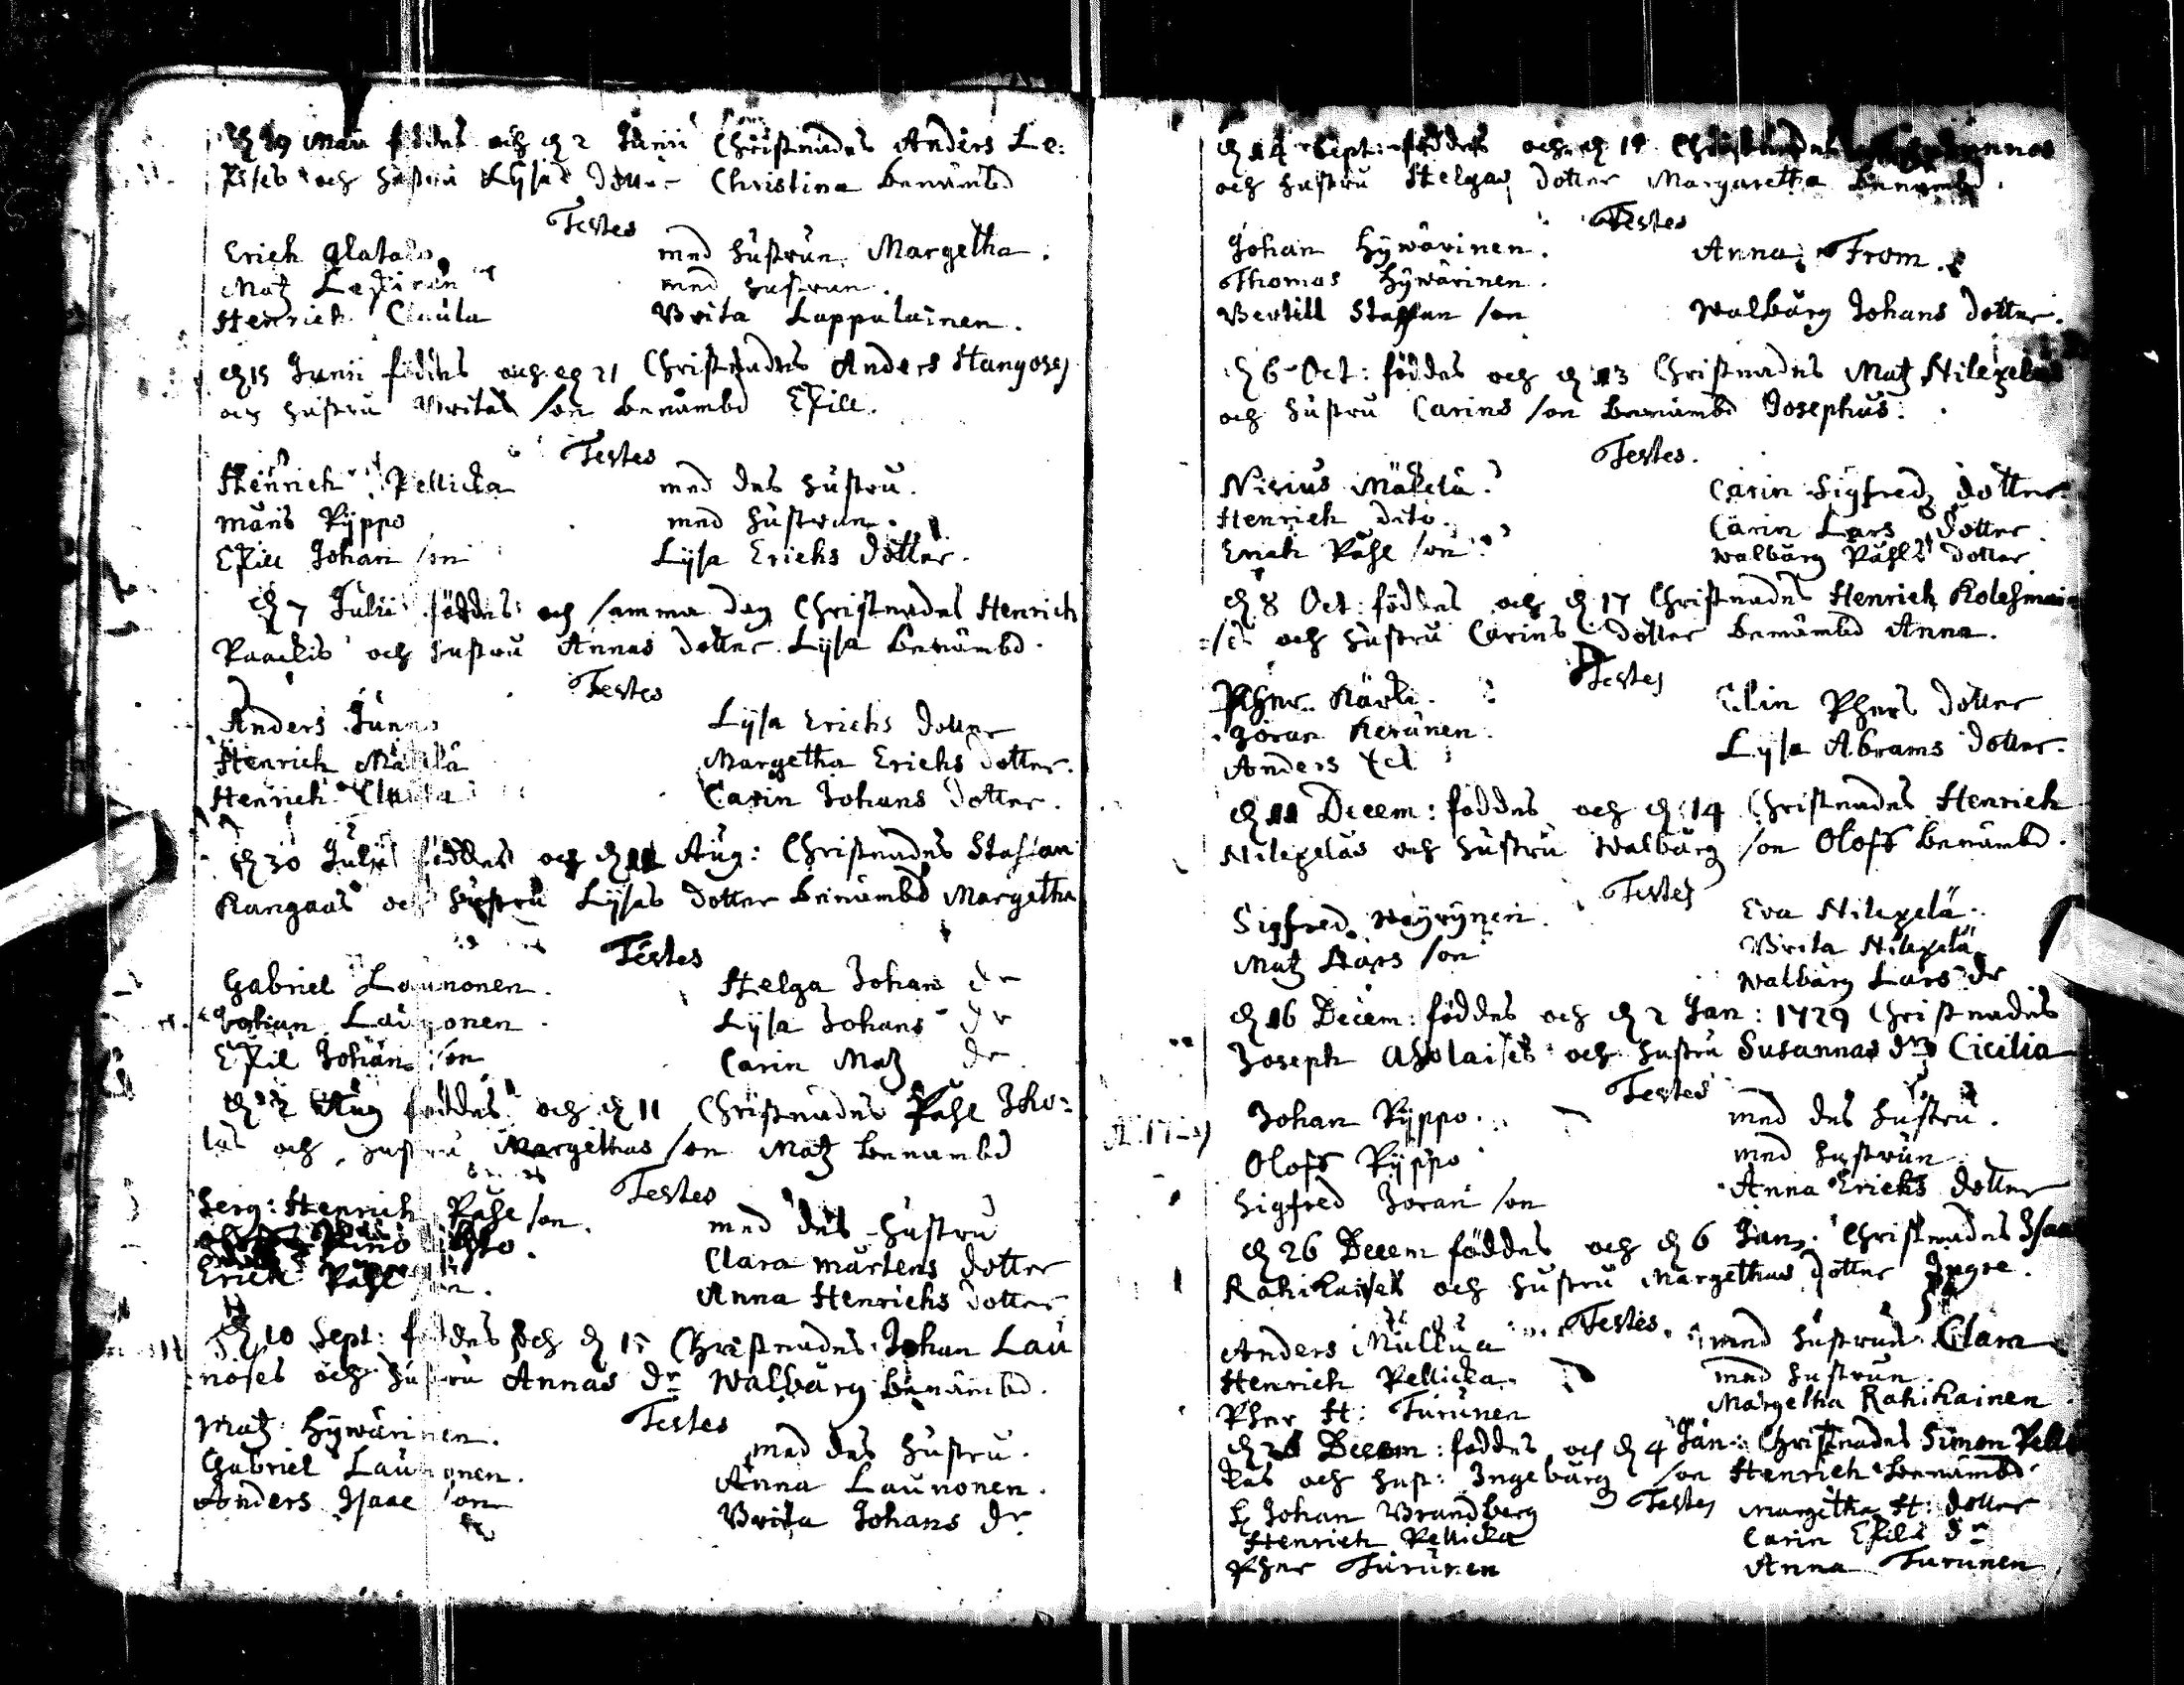 29 Maii föddes och d 2 Junii Christnades Anders Le:
och hustru Lysas dotter Christina benämbd
Testes
Erich med hustrun Margetha.
Matz med hustrun.
Henrich Claula Brita Lappalainen.
d 15 Junii föddes och d 21 Christnades Anders Hangoses
och hustru Britas son benämbd Eskill.
Testes
Henrich Pellicka med des hustru.
Måns Ryppo med hustrun.
Eskill Johan son Lysa Erichs dotter.
d 7 Julii föddes och samma dag Christnades Henrich
och hustru Annas dotter Lysa benämbd.
Testes
Anders Lysa Erichs dotter
Henrich Margetha Erichs dotter.
Henrich Carin Johans dotter.
d 30 Julii föddes och d Aug: Christnades Staffan
Kangaas och hustru Lysas dotter benämbd Margetha
Testes
Gabriel Launonen. Helga Johans dr
Launonen. Lysa Johans dr
Eskil Johan son Carin Matz dr
d 2 Aug föddes och d 11 Christnades Påhl Iko:
las och hustru Margethas son Matz benämbd
Testes
Serg: Henrich Påhl son. med des hustru
Clara Mårtens dotter
Erich Påhl son. Anna Henrichs dotter
d 10 Sept: föddes och d 15 Christnades Johan Lau
noses och hustru Annas dr Walbårg benämbd.
Testes
Matz Hywärinen. med des hustru.
Gabriel Launonen. Anna Launonen.
Anders Isaac son Brita Johans dr
d 14 Sept: föddes och d 19 Christnades
och hustru Helgas dotter Margaretha benämbd.
Testes
Johan Hywärinen. Anna From.
Thomas Hywärinen.
Bertill Staffan son Walbårg Johans dotter.
d 6 Oct: föddes och d 13 Christnades Matz Hilexelas
och hustru Carins son benämbd Josephus.
Testes.
Mäkelä. Carin Sigfredz dotter
Henrich dito. Carin Lars dotter.
Erich Påhl son Walbårg Påhls dotter
d 8 Oct: föddes och d 17 Christnades Henrich Kolehmai
och hustru Carins dotter benämbd Anna.
Testes
Pher Kärki. Elin Phers dotter
Jöran Keränen. Lysa Abrams dotter.
Anders
d 11 Decem: föddes och d 14 Christnades Henrich
Hilexelas och hustru Walbårg son Oloff benämbd.
Testes
Sigfred Wäyrynen. Eva Hilexelä.
Matz Lars son Brita Hilexelä
Walbårg Lars dr
d 16 Decem: föddes och d 2 Jan: 1729 Christnades
Joseph Aholaises och hustru Susannas dr Cicilia
Testes
A. 1729
Johan Ryppo. med des hustru.
Oloff Ryppo med hustrun.
Sigfred Jöran son Anna Erichs dotter
d 26 Decem föddes och d 6 Jan. Christnades Isaac
Rahikaises och hustru Margethas dotter Ingre.
Testes.
Anders Mullua med hustrun Clara
Henrich Pellicka. med hustrun.
Pher H: Turunen Margetha Rahikainen
Decem: föddes och d 4 Jan: Christnades Simon Pelli
kas och hust: Ingebårg son Henrich benämbd
Testes
H Johan Brandberg Margetha H: dotter
Henrich Pellicka Carin Eskils dr
Pher Turunen Anna Turunen